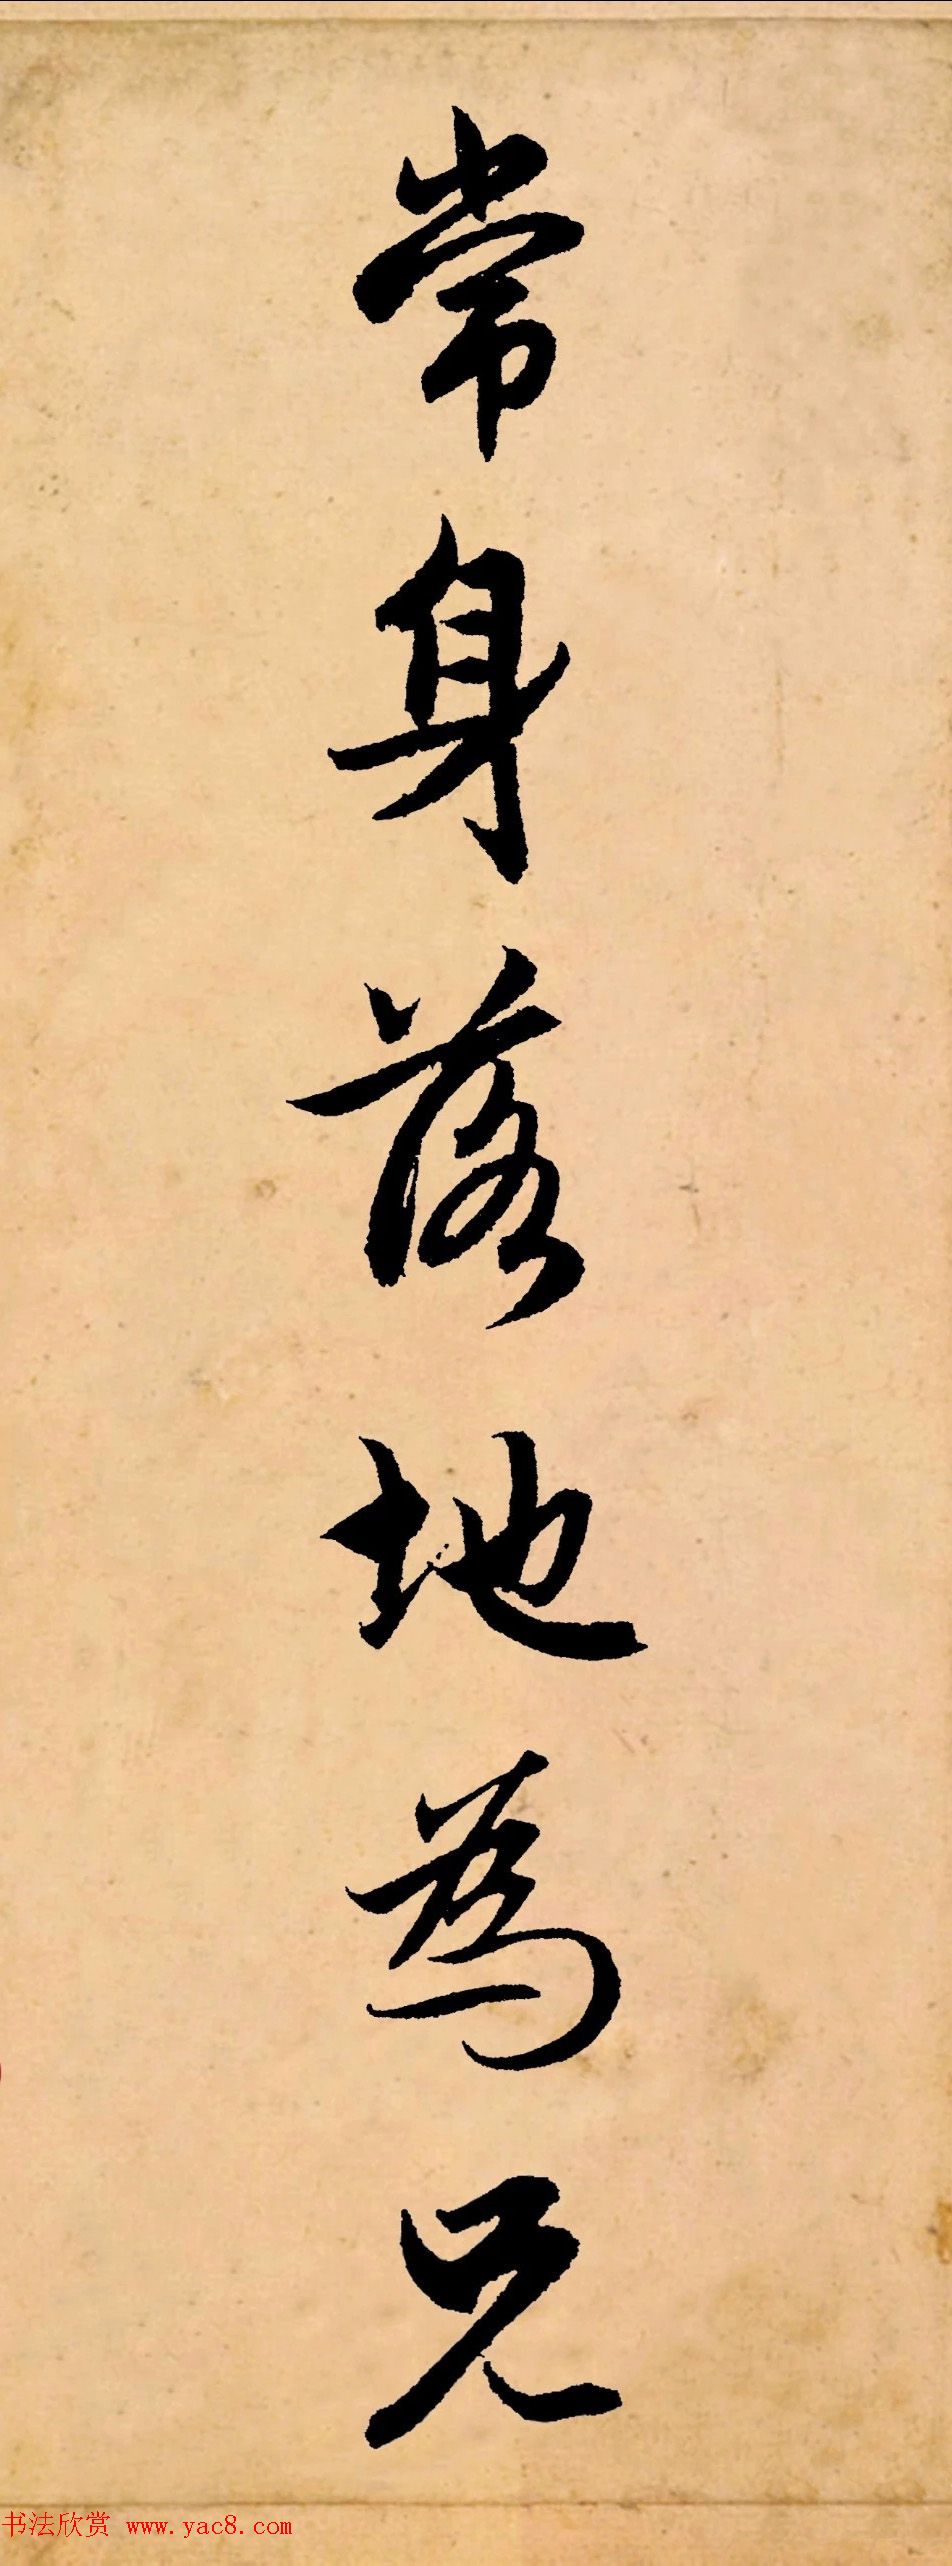 常身落地為兄
书法欣赏 www.yac8.com